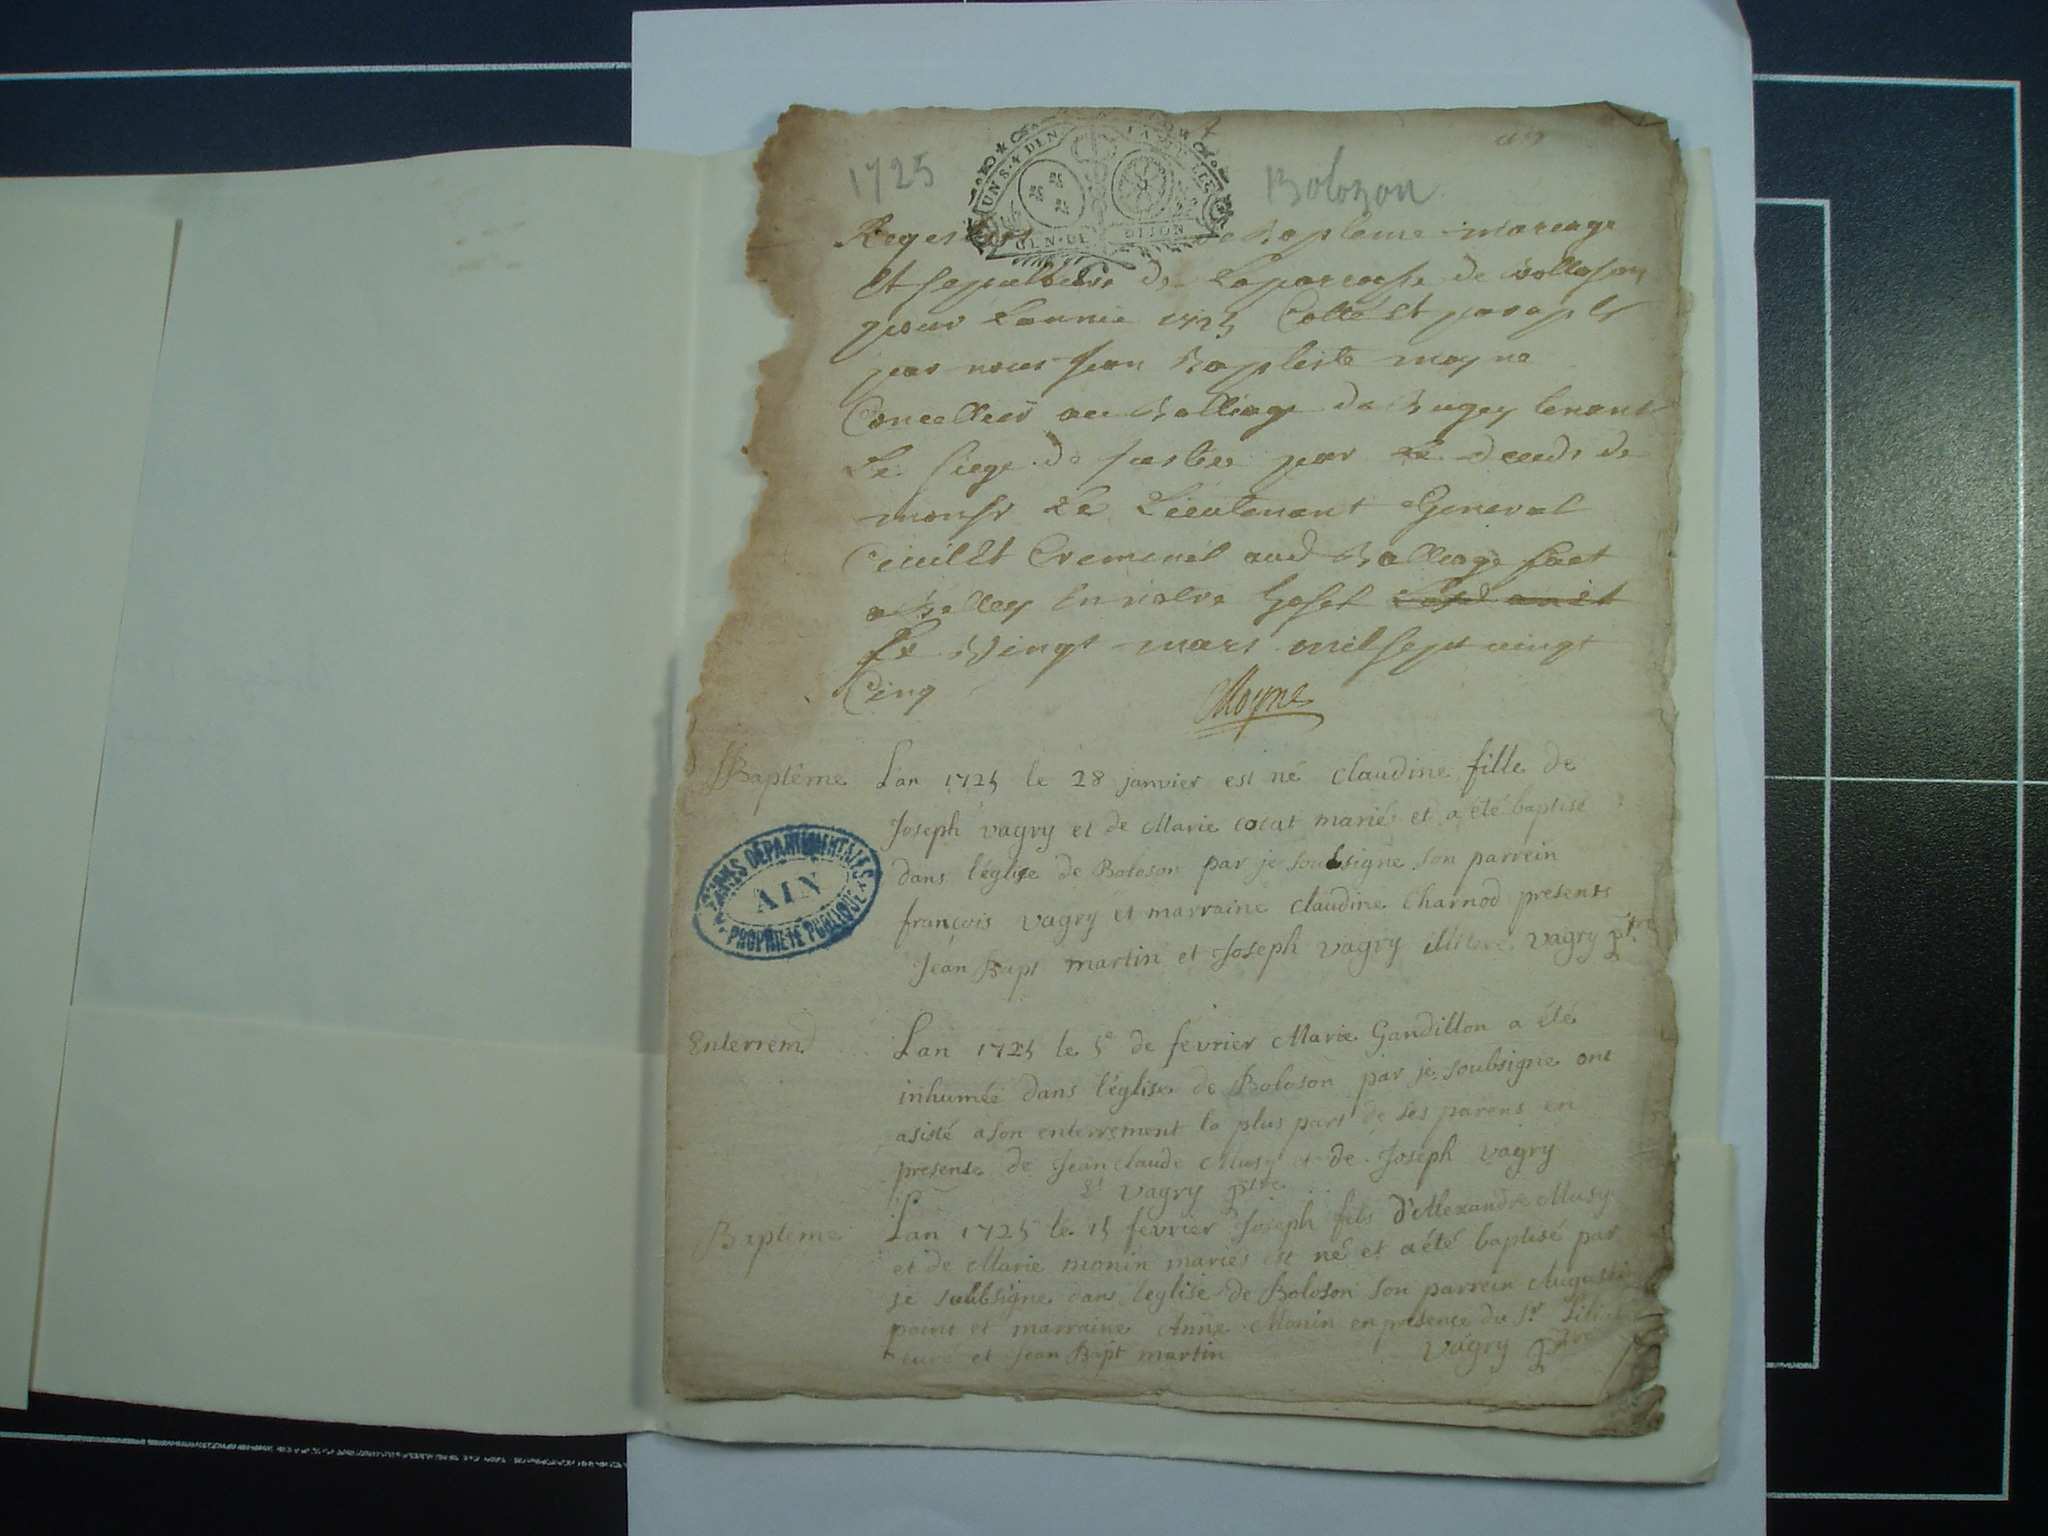 1725
UN S. 4 DEN
GEN. DE DIJON
Bolozon
Regestre de Bapteme mareage
Et sepulture de Laparoesse de Bolloson
pour Lannee 1725 Cotté Et paraplé
par nous Jean Bapteste moyne
Concellier au Balliage de Bugey tenant
Le siege de Justice par Le deceds de
monsr Le Lieutenant General
Ceuil Et Cremenel aud Balliage fait
a Belley En nostre hostel
Le Vingt mars mil sept vingt
Cinq
Moyne
Baptême L'an 1725 le 28 janvier est né claudine fille de
Joseph vagry et de Marie cocat mariés et a été baptisé
dans l'église de Boloson par je soubsigné son parrein
françois vagry et marraine claudine Charnod presents
Jean Bapt martin et Joseph vagry vagry ptre
ARCHIVES DÉPARTEMENTALES
AIN
PROPRIÉTÉ PUBLIQUE
Enterrem Lan 1725 le 5e de fevrier Marie Gandillon a été
inhumée dans l'église de Boloson par je soubsigne ont
asisté a son enterrement la plus part de ses parens en
presense de Jean claude Musy et de Joseph vagry
vagry ptre
Bapteme Lan 1725 le 15 fevrier Joseph fils d'Alexandre Musy
et de Marie monin mariés est né et a été baptisé par
je soubsigne dans leglise de Boloson son parrein Augusti
point et marraine Anne Monin en presence du Sr
curé et Jean Bapt martin vagry ptre